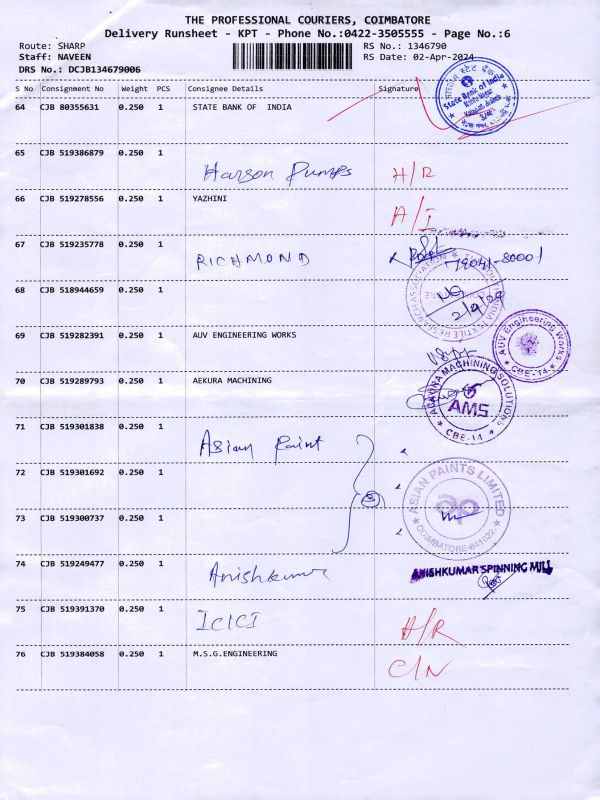 THE PROFESSIONAL COURIERS, COIMBATORE
Delivery Runsheet - KPT - Phone No.:0422-3505555 - Page No.:6
Route: SHARP RS No.: 1346790
Staff: NAVEEN RS Date: 02-Apr-2024
DRS No.: DCJB134679006
S No Consignment No Weight PCS Consignee Details Signature
64 CJB 80355631 0.250 1 STATE BANK OF INDIA
State Bank of India
65 CJB 519386879 0.250 1
Harson Pumps H/R
66 CJB 519278556 0.250 1 YAZHINI
A/I
67 CJB 519235778 0.250 1
RICHMOND
68 CJB 518944659 0.250 1
69 CJB 519282391 0.250 1 AUV ENGINEERING WORKS
AUV Engineering Works
CBE-14
70 CJB 519289793 0.250 1 AEKURA MACHINING
MACHINING SOLUTIONS
AMS
CBE-14
71 CJB 519301838 0.250 1
Asian Paint
72 CJB 519301692 0.250 1
3
ASIAN PAINTS LIMITED
ap
COIMBATORE-641022
73 CJB 519300737 0.250 1
74 CJB 519249477 0.250 1
Anishkumar ANISHKUMAR SPINNING MILL
75 CJB 519391370 0.250 1
ICICI H/R
76 CJB 519384058 0.250 1 M.S.G.ENGINEERING
C/N